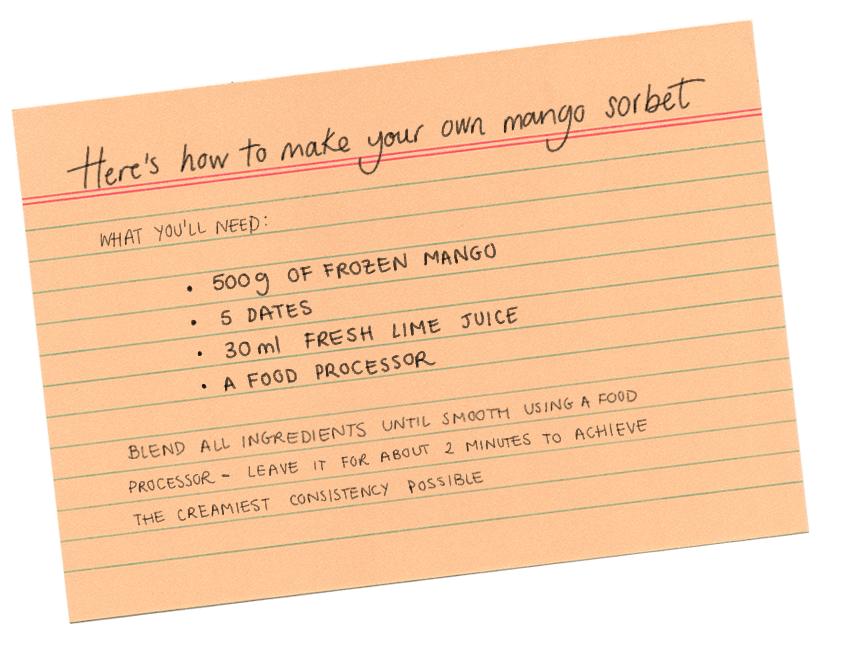 Here's how to make your own mango sorbet
WHAT YOU'LL NEED:
• 500g OF FROZEN MANGO
• 5 DATES
• 30ml FRESH LIME JUICE
• A FOOD PROCESSOR
BLEND ALL INGREDIENTS UNTIL SMOOTH USING A FOOD
PROCESSOR - LEAVE IT FOR ABOUT 2 MINUTES TO ACHIEVE
THE CREAMIEST CONSISTENCY POSSIBLE